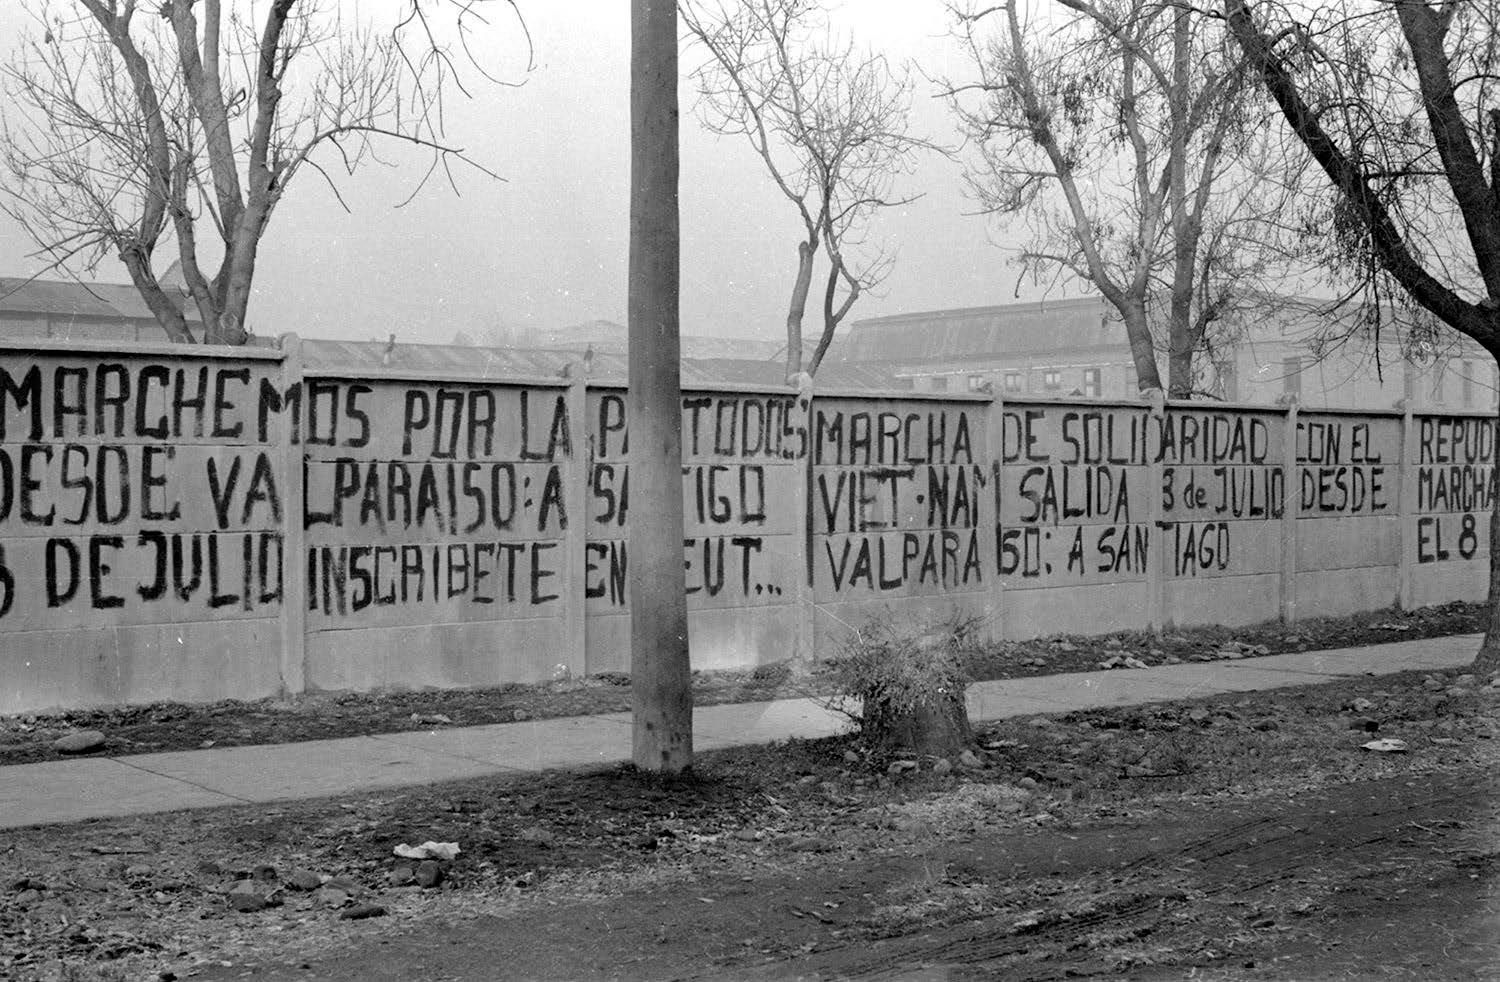 MARCHEMOS POR LA PA TODOS
DESDE VALPARAISO: A SA TIGO
DE JULIO INSCRIBETE EN EUT...
MARCHA DE SOLIDARIDAD CON EL
VIET·NAM SALIDA 3 de JULIO DESDE
VALPARAISO: A SANTIAGO
REPUD
MARCHA
EL 8